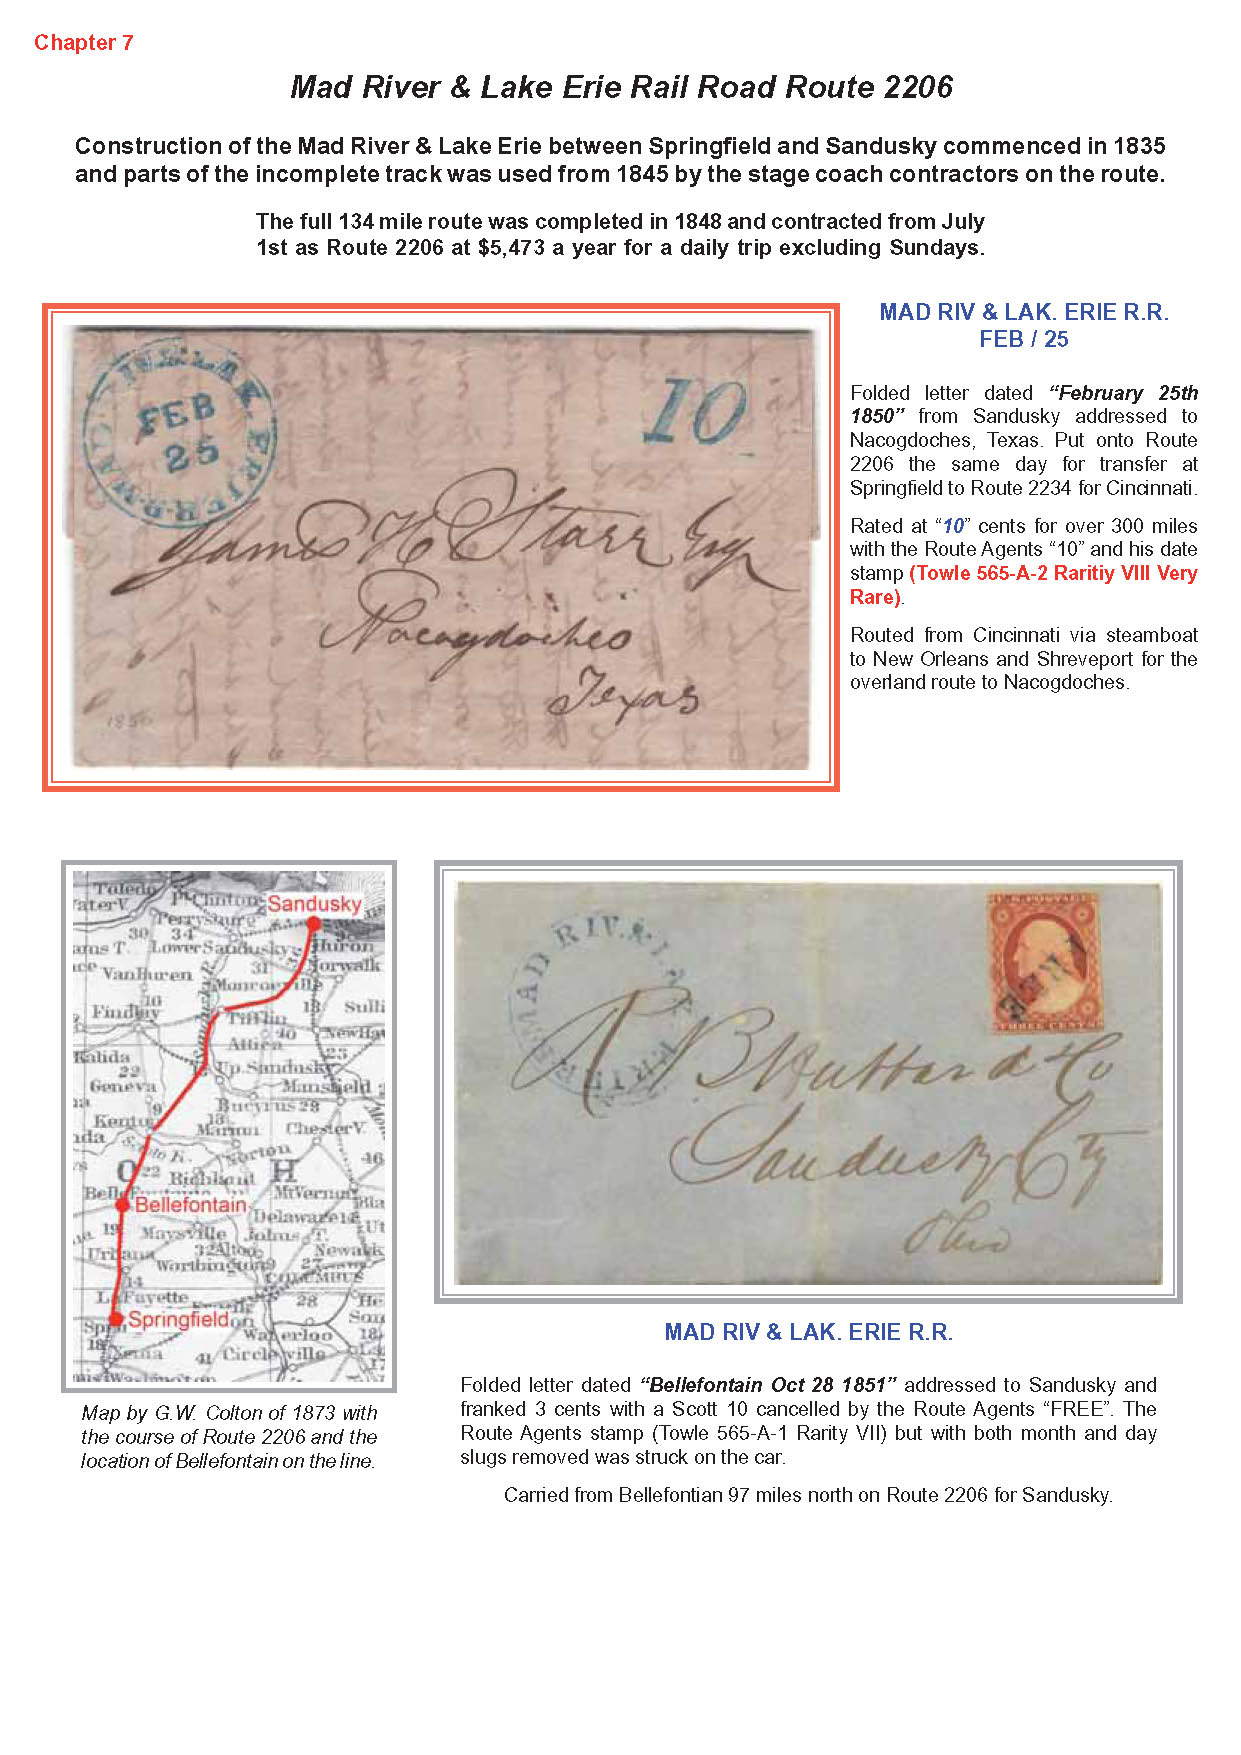 Chapter 7
Mad River & Lake Erie Rail Road Route 2206
Construction of the Mad River & Lake Erie between Springfield and Sandusky commenced in 1835
and parts of the incomplete track was used from 1845 by the stage coach contractors on the route.
The full 134 mile route was completed in 1848 and contracted from July
1st as Route 2206 at $5,473 a year for a daily trip excluding Sundays.
FEB
25
10
James H Starr Esq
Nacogdoches
Texas
1850
MAD RIV & LAK. ERIE R.R.
FEB / 25
Folded letter dated “February 25th
1850” from Sandusky addressed to
Nacogdoches, Texas. Put onto Route
2206 the same day for transfer at
Springfield to Route 2234 for Cincinnati.
Rated at “10” cents for over 300 miles
with the Route Agents “10” and his date
stamp (Towle 565-A-2 Raritiy VIII Very
Rare).
Routed from Cincinnati via steamboat
to New Orleans and Shreveport for the
overland route to Nacogdoches.
Toledo
Clinton
Sandusky
Perrysburg
30 34
Lower Sandusky
Huron
VanBuren
31
Norwalk
Monroeville
10
Findlay
Tiffin
Sulli
40
Attica
Kalida
22
Up. Sandusky
23
Geneva
Mansfield
9
Bucyrus 28
Kento
Marion
Chester V.
Norton
46
O
22
Richland
H
Mt Vernon
Bellefontain
Delaware
19
Maysville
Johns T.
Urbana
32 Alton
Newark
Worthington
27
14
COLUMBUS
La Fayette
28
Springfield
Waterloo
18
Xenia
41
Circleville
Washington
Map by G.W. Colton of 1873 with
the course of Route 2206 and the
location of Bellefontain on the line.
MAD RIV. &
U.S. POSTAGE
FREE
THREE CENTS
R B Hubbard & Co
Sandusky City
Ohio
MAD RIV & LAK. ERIE R.R.
Folded letter dated “Bellefontain Oct 28 1851” addressed to Sandusky and
franked 3 cents with a Scott 10 cancelled by the Route Agents “FREE”. The
Route Agents stamp (Towle 565-A-1 Rarity VII) but with both month and day
slugs removed was struck on the car.
Carried from Bellefontian 97 miles north on Route 2206 for Sandusky.